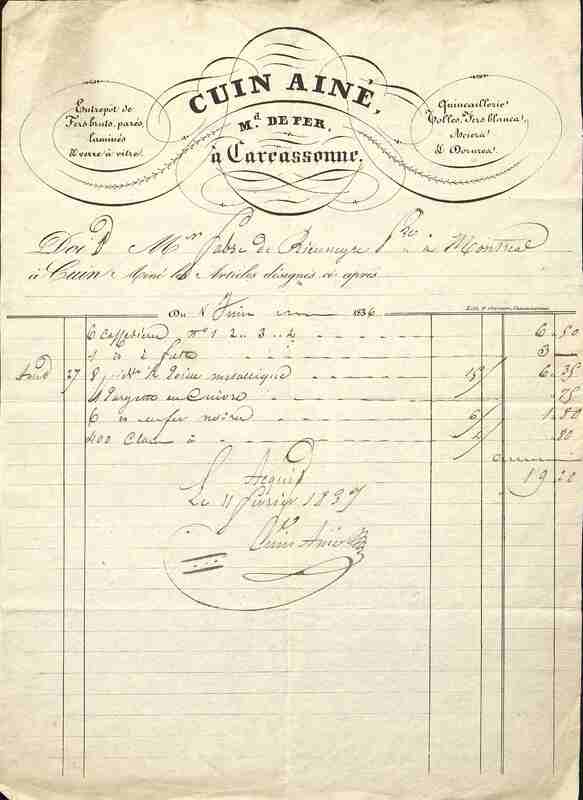 CUIN AINÉ,
M.d DE FER,
à Carcassonne.
Entrepôt de
Fers bruts, parés,
laminés
& verre à vitre.
Quincaillerie
Tolles, Fers blancs,
Aciers
& Dorures
Doit Mr Fabre de Rieunegre à Montreal
à Cuin Ainé les Articles désignés ci après
Du 8 Juin 1836
6 Caffetières nos 1 2 .. 3 .. 6 80
1 id à 3
Aoud 27 8 métallique 15 6 35
en Cuivre 75
6 id en fer noirci 6 1 80
400 Clous à 80
19 20
Acquit
Le 11 février 1837
Cuin Ainé